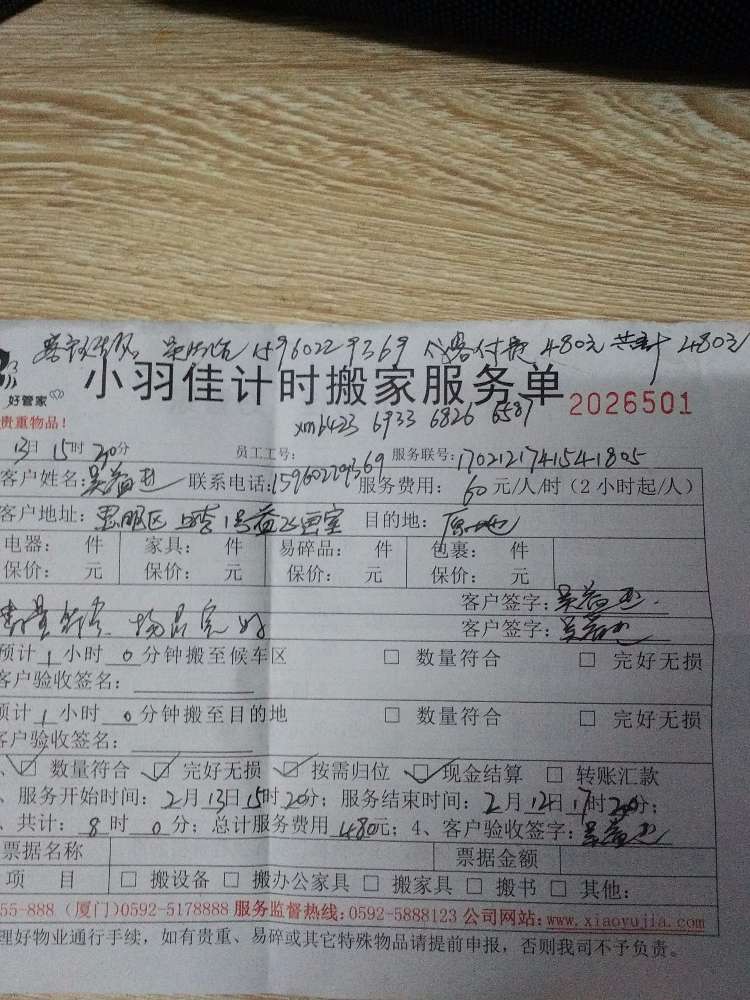 15960229369 付费 480元 共计 480元
好管家
小羽佳计时搬家服务单 2026501
贵重物品！
xm6423 6933 6826 6587
13日 15时 20分 员工工号： 服务联号：1702121741541805
客户姓名： 联系电话：15960229369 服务费用： 60 元/人/时（2小时起/人）
客户地址：思明区 1号 画室 目的地：原地
电器： 件 家具： 件 易碎品： 件 包裹： 件
保价： 元 保价： 元 保价： 元 保价： 元
客户签字：
物品完好 客户签字：
预计 1 小时 0 分钟搬至候车区 □ 数量符合 □ 完好无损
客户验收签名：
预计 1 小时 0 分钟搬至目的地 □ 数量符合 □ 完好无损
客户验收签名：
、☑ 数量符合 ☑ 完好无损 ☑ 按需归位 ☑ 现金结算 □ 转账汇款
、服务开始时间：2月13日15时20分；服务结束时间：2月12日17时20分；
、共计：8时 0分；总计服务费用 480元；4、客户验收签字：
票据名称 票据金额
项 目 □ 搬设备 □ 搬办公家具 □ 搬家具 □ 搬书 □ 其他：
55-888（厦门）0592-5178888 服务监督热线：0592-5888123 公司网站：www.xiaoyujia.com
理好物业通行手续，如有贵重、易碎或其它特殊物品请提前申报，否则我司不予负责。